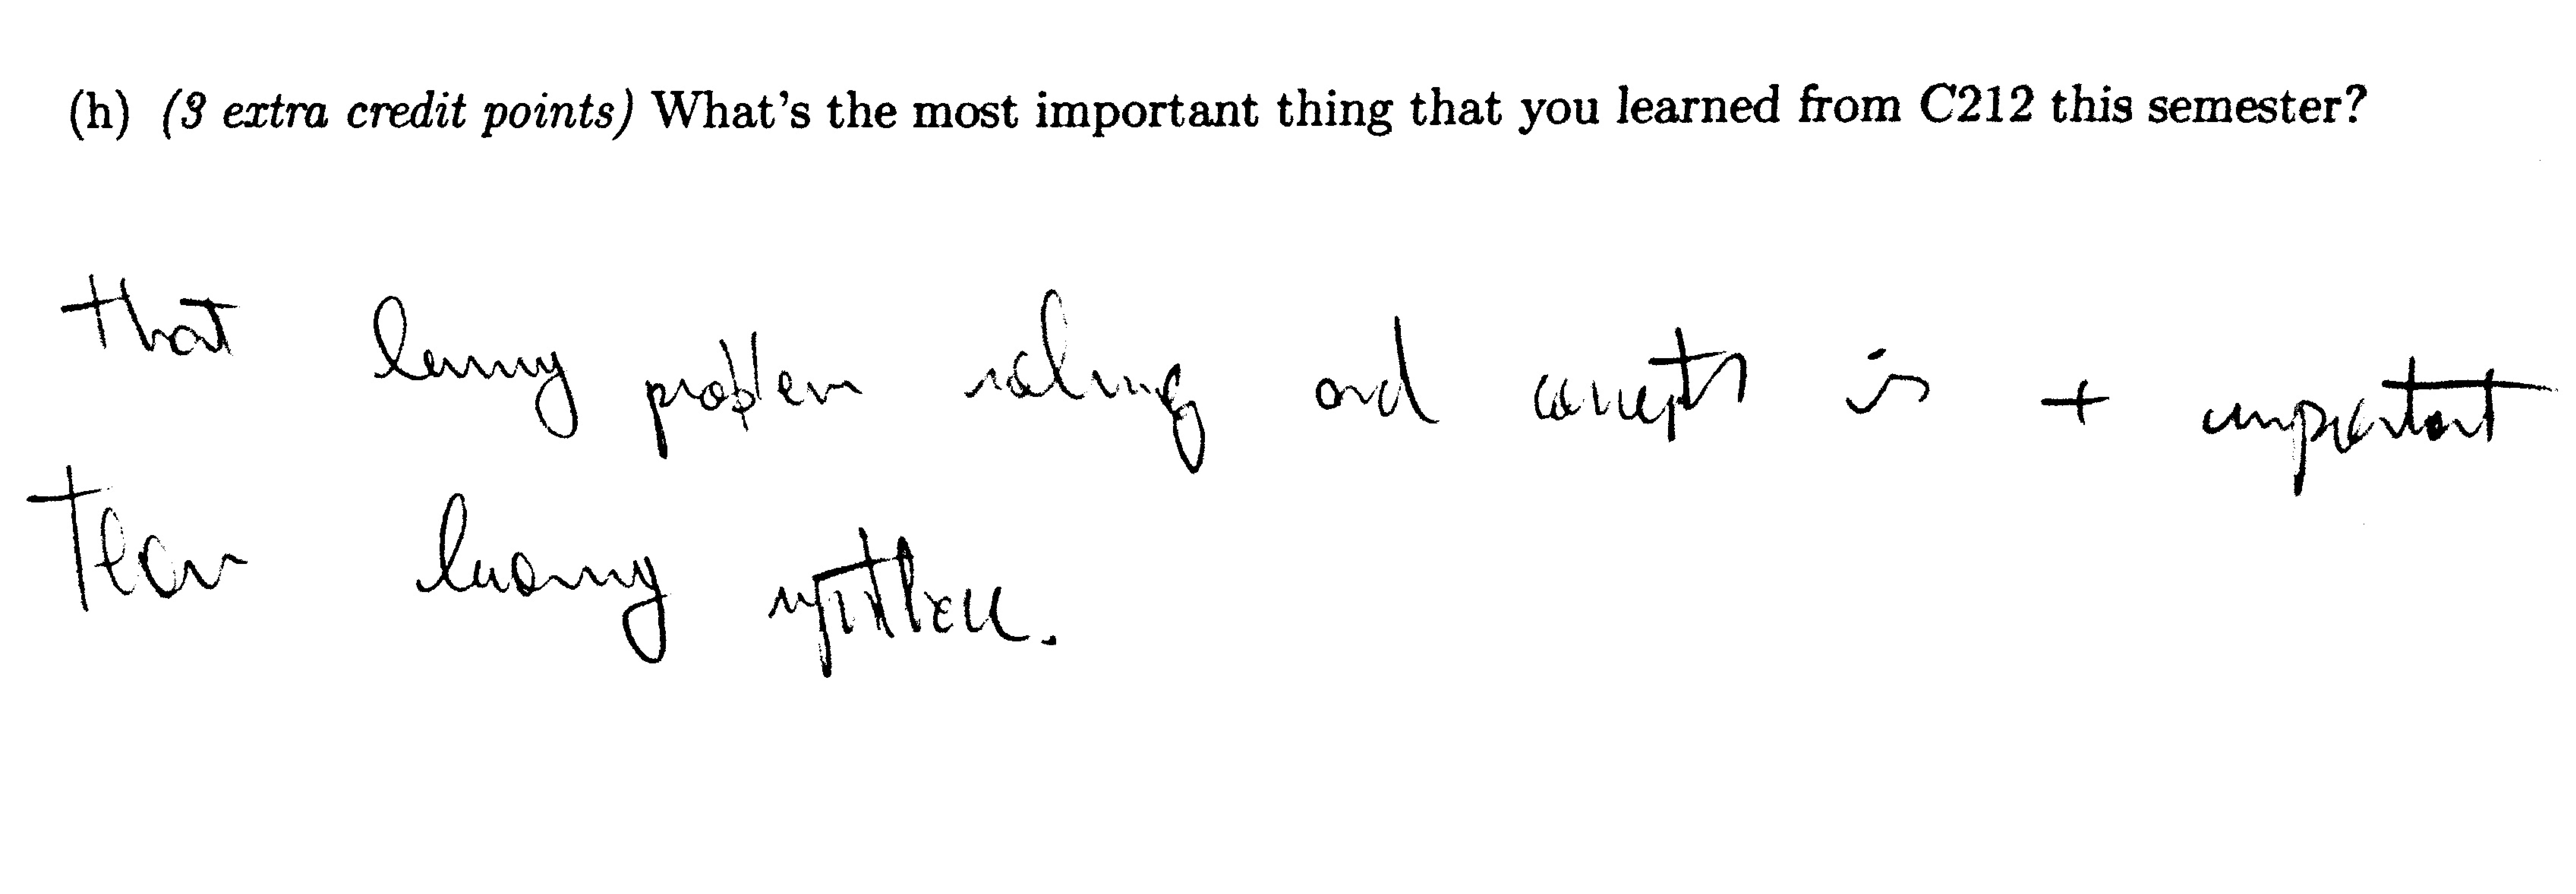 (h) (3 extra credit points) What's the most important thing that you learned from C212 this semester?
that learning problem solving and concepts is + important
than learning